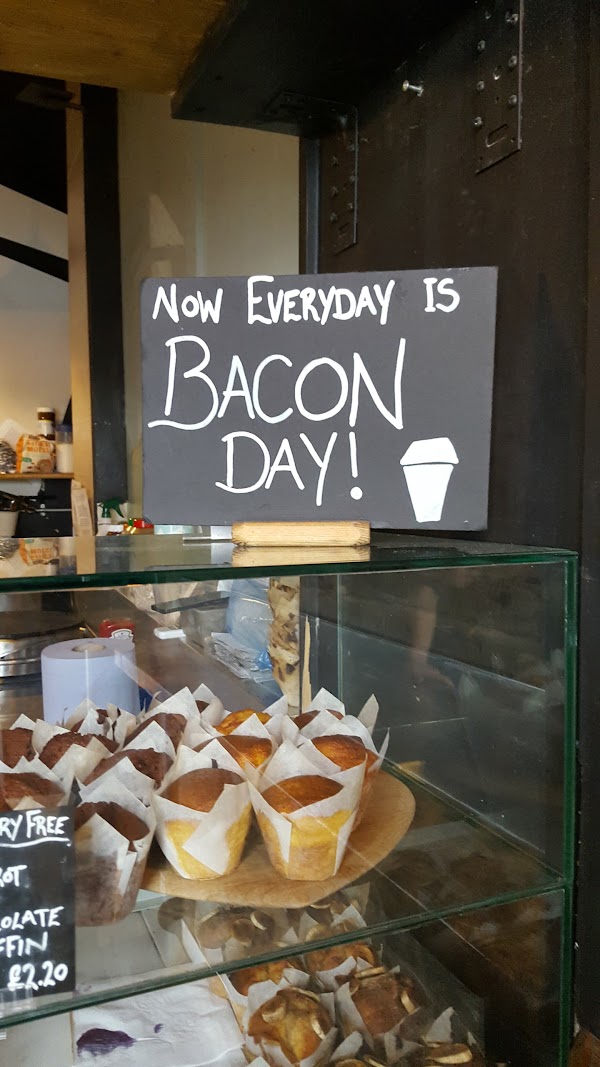 NOW EVERYDAY IS
BACON
DAY!
RY FREE
OT
OLATE
FFIN
£2.20